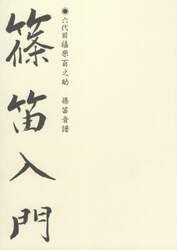 六代目福原百之助　篠笛音譜
篠笛入門